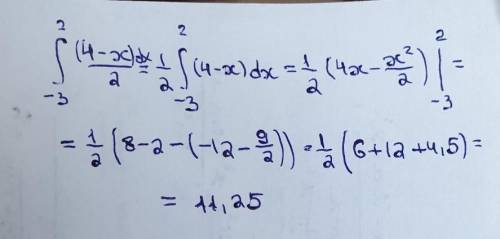 ∫₋₃² (4-x)dx/2 = 1/2 ∫₋₃² (4-x)dx = 1/2 (4x - x²/2) |₋₃² =
= 1/2 (8-2-(-12-9/2)) = 1/2 (6+12+4,5) =
= 11,25